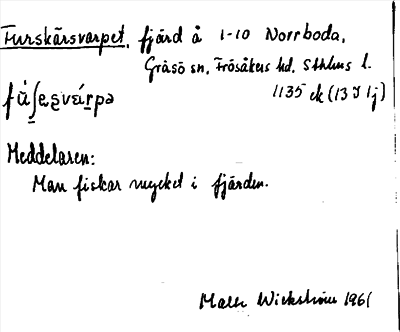 Furskärsvarpet, fjärd å 1-10 Norrboda,
Gräsö sn, Frösåkers hd. Sthlms l.
1135 ek (13 I 1j)
Meddelaren:
Man fiskar mycket i fjärden.
Wickström 1961